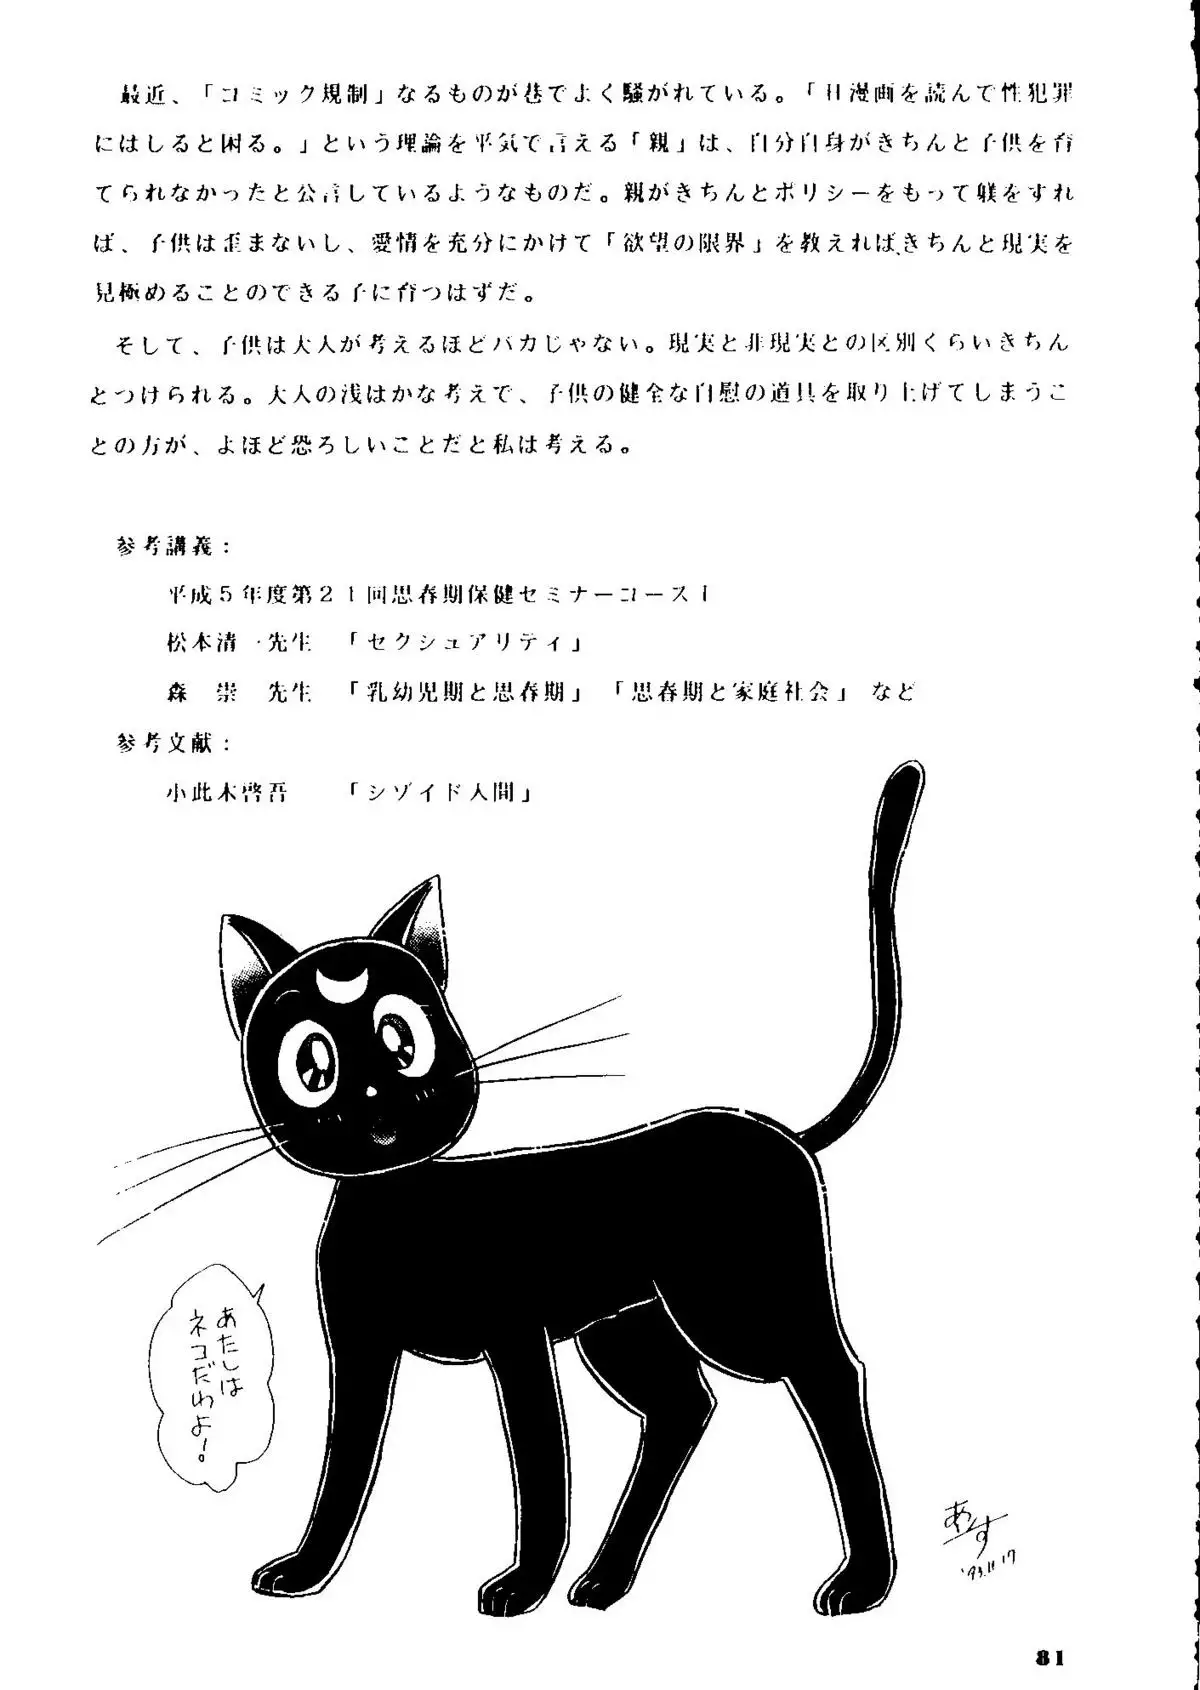 最近、「コミック規制」なるものが巷でよく騒がれている。「H漫画を読んで性犯罪
にはしると困る。」という理論を平気で言える「親」は、自分自身がきちんと子供を育
てられなかったと公言しているようなものだ。親がきちんとポリシーをもって躾をすれ
ば、子供は歪まないし、愛情を充分にかけて「欲望の限界」を教えれば、きちんと現実を
見極めることのできる子に育つはずだ。
そして、子供は大人が考えるほどバカじゃない。現実と非現実との区別くらいきちん
とつけられる。大人の浅はかな考えで、子供の健全な自慰の道具を取り上げてしまうこ
との方が、よほど恐ろしいことだと私は考える。
参考講義：
平成５年度第２１回思春期保健セミナーコースⅠ
松本清一先生　「セクシュアリティ」
森　崇　先生　「乳幼児期と思春期」「思春期と家庭社会」など
参考文献：
小此木啓吾　　「シゾイド人間」
あたしは
ネコだわよ！
あんず
'93.11.17
81